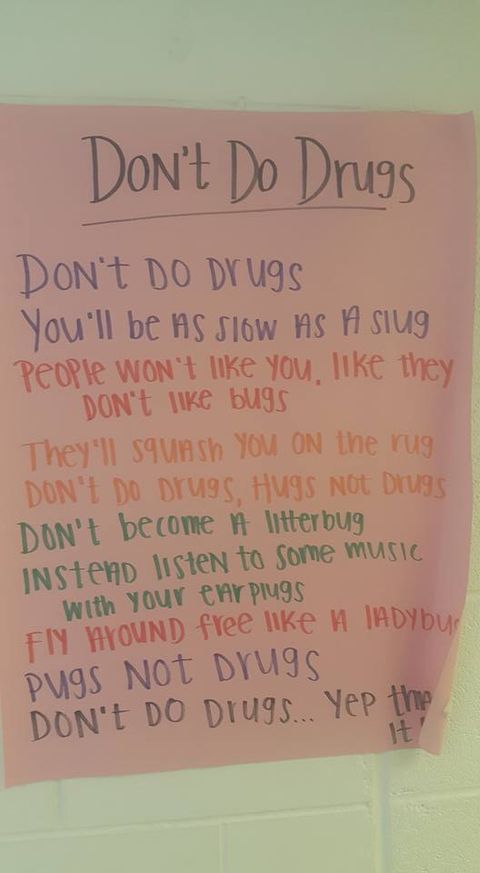 Don't Do Drugs
Don't Do Drugs
You'll be as slow as a slug
People won't like you, like they
don't like bugs
They'll squash you on the rug
Don't do drugs, Hugs not drugs
Don't become a litterbug
Instead listen to some music
with your earplugs
Fly around free like a
Pugs not drugs
Don't do drugs... Yep
It